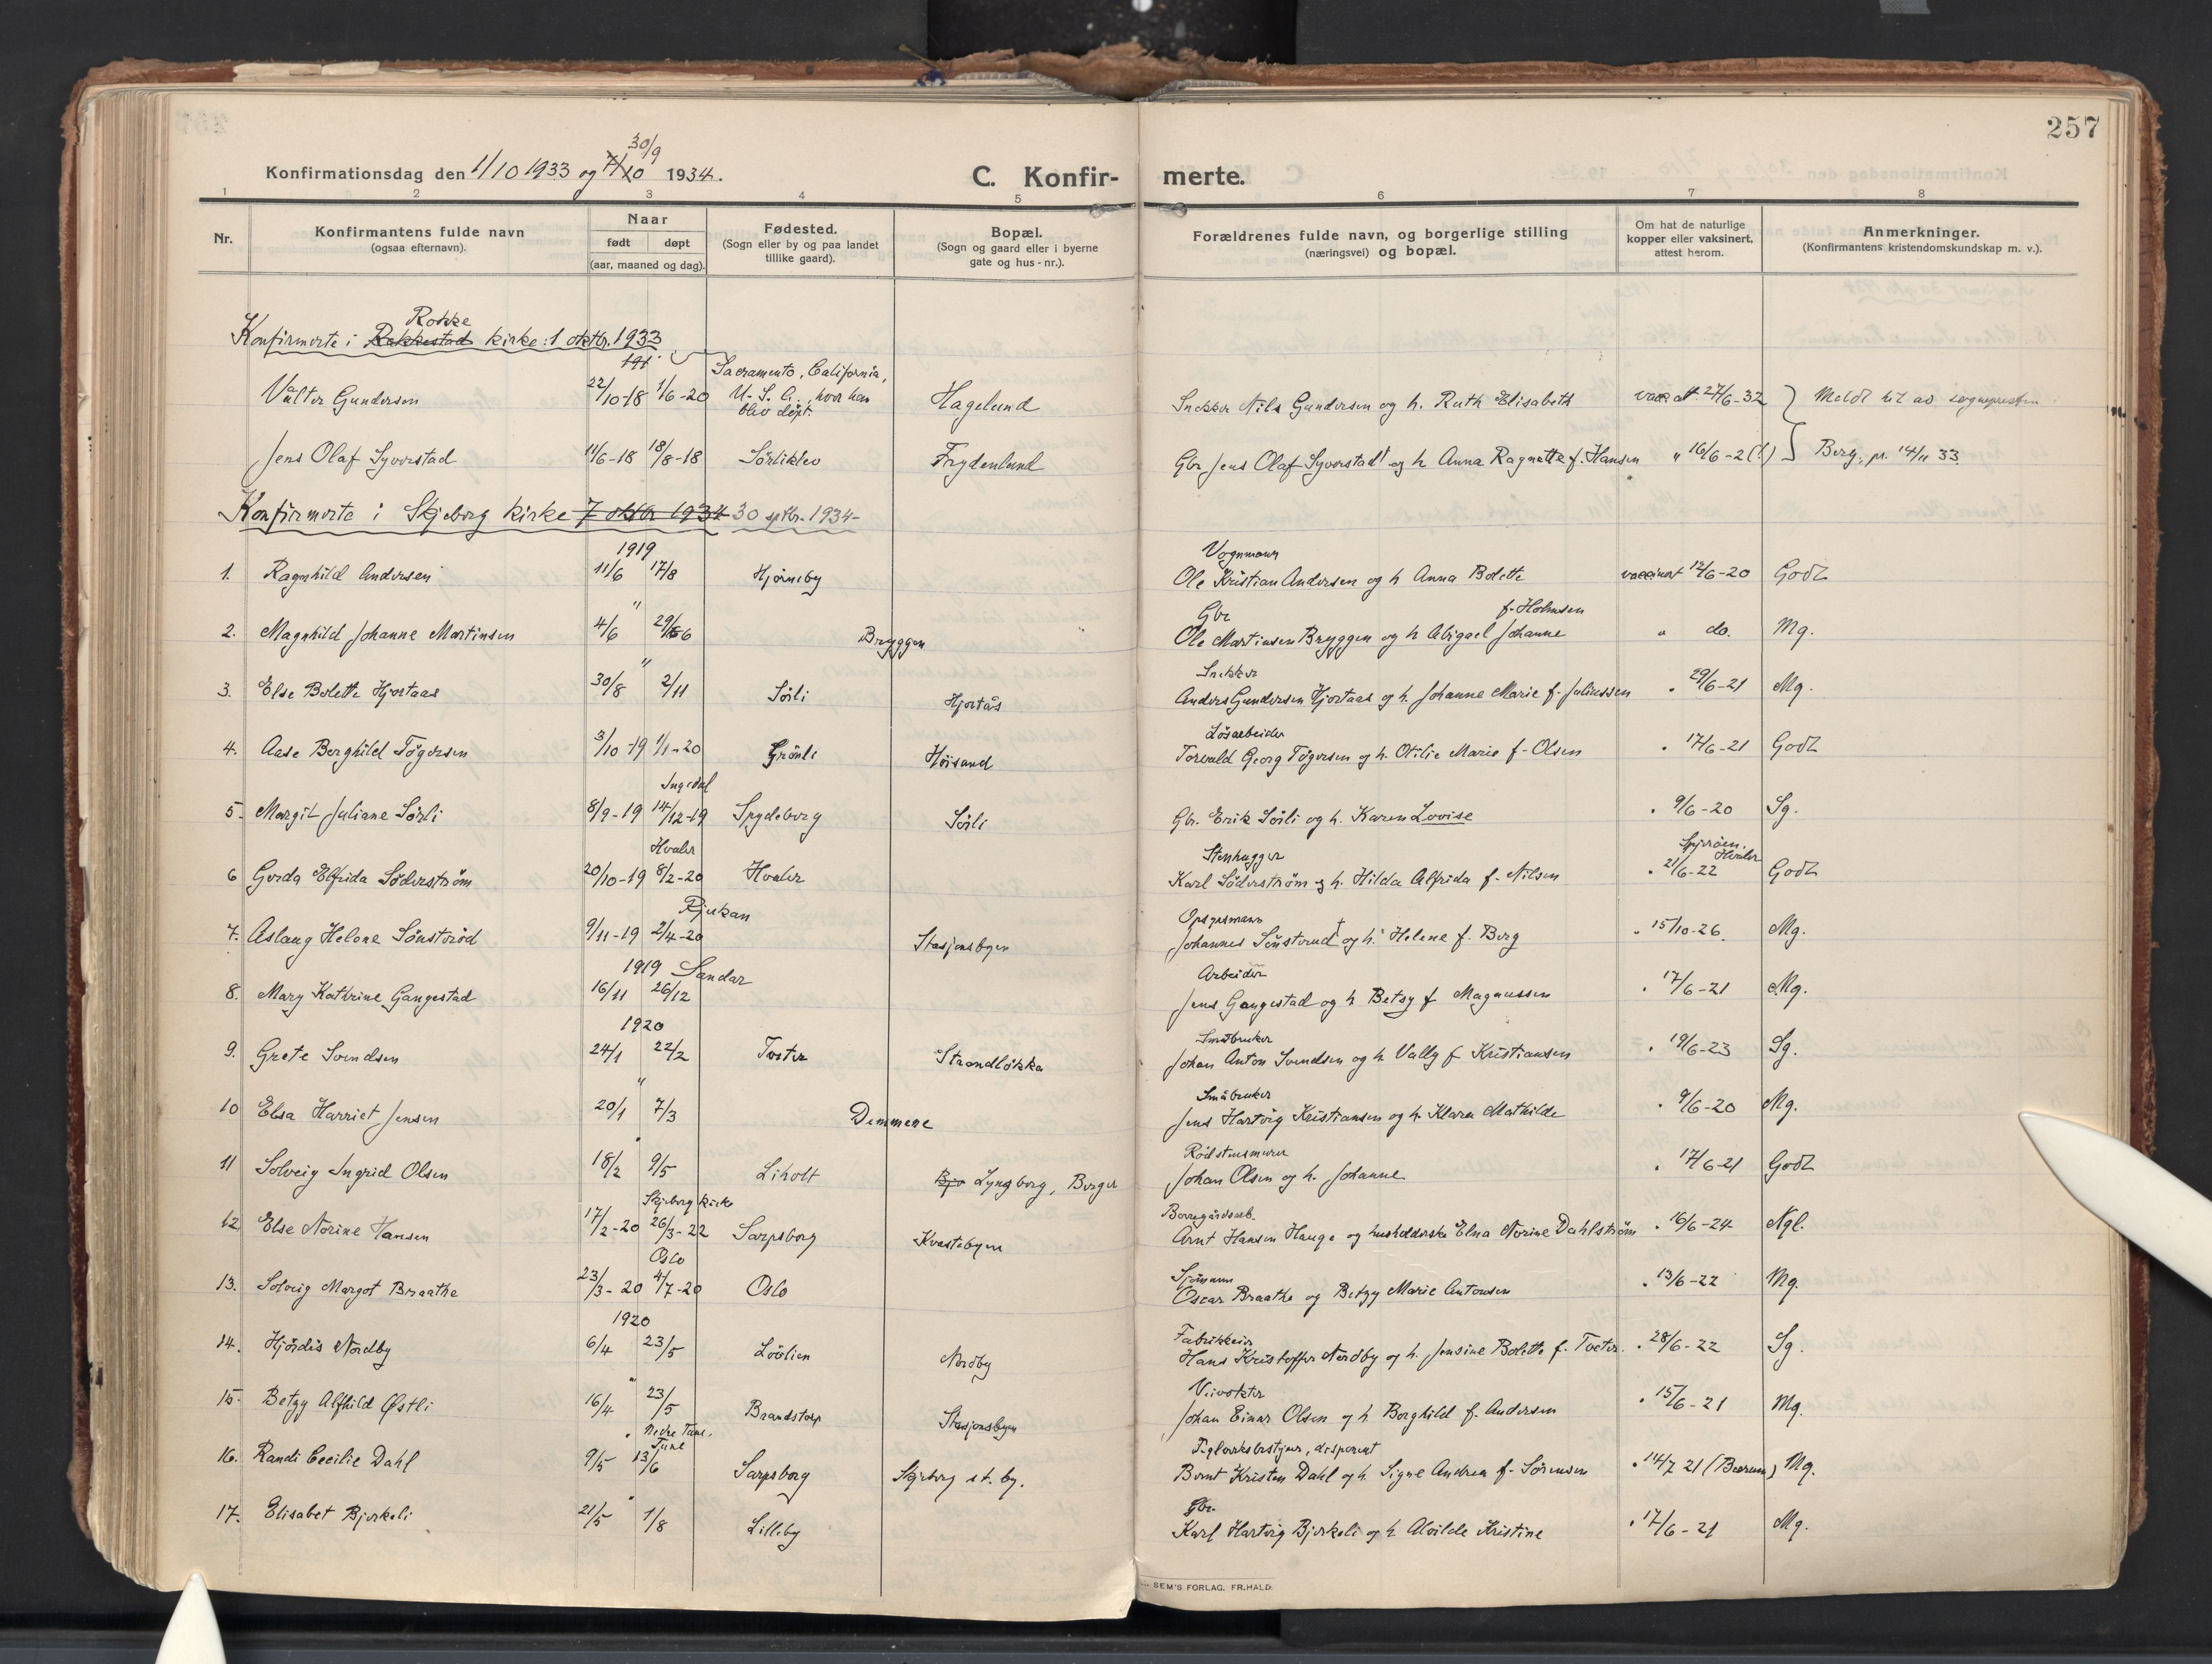 257
30/9
Konfirmationsdag den 1/10 1933 og 7/10 1934. C. Konfir- merte.
1 2 3 4 5 6 7 8
Nr.
Konfirmantens fulde navn
(ogsaa efternavn).
Naar
født døpt
(aar, maaned og dag).
Fødested.
(Sogn eller by og paa landet
tillike gaard).
Bopæl.
(Sogn og gaard eller i byerne
gate og hus-nr.).
Forældrenes fulde navn, og borgerlige stilling
(næringsvei) og bopæl.
Om hat de naturlige
kopper eller vaksinert,
attest herom.
Anmerkninger.
(Konfirmantens kristendomskundskap m. v.).
Rokke
Konfirmerte i Rakkestad kirke: 1 oktbr. 1933
191
Sacramento, California,
Valter Gundersen 22/10-18 1/6-20 U.S.A., hvor han Hagelund Snekker Nils Gundersen og h. Ruth Elisabeth vacc att. 27/6-32 Meldt hit av sognepresten
blev døpt.
Jens Olaf Syverstad 11/6-18 18/8-18 Sørliklev Frydenlund Gbr Jens Olaf Syverstad† og h Anna Ragnette f. Hansen " 16/6-2(?) Berg, pr. 14/11 33.
Konfirmerte i Skjeberg kirke 7 oktbr 1934 30 sptbr. 1934-
1919 Vognmann
1. Ragnhild Andersen 11/6 17/8 Hjørneby Ole Kristian Andersen og h Anna Bolette vaccinert 12/6-20 Godt
" Gbr f. Holmsen
2. Magnhild Johanne Martinsen 4/6 29/6 Bryggen Ole Martinsen Bryggen og h Abigael Johanne " do. Mg.
" Snekker
3. Else Bolette Hjortaas 30/8 2/11 Sørli Hjortås Anders Gundersen Hjortaas og h. Johanne Marie f. Juliussen " 29/6-21 Mg.
Løsarbeider
4. Aase Borghild Tøgersen 3/10-19 1/1-20 Grønli Høisand Torvald Georg Tøgersen og h. Otilie Marie f. Olsen " 17/6-21 Godt
Ingedal
5. Margit Juliane Sørli 8/9-19 14/12-19 Spydeberg Sørli Gbr. Erik Sørli og h. Karen Lovise " 9/6-20 Sg.
Hvaler Stenhugger Spjærøen, Hvaler
6 Gerda Elfrida Söderström 20/10-19 8/2-20 Hvaler Karl Söderström og h. Hilda Alfrida f. Nilsen " 21/6-22 Godt
Rjukan Opsynsmann
7. Aslaug Helene Sønsterød 9/11-19 2/4-20 Stasjonsbyen Johannes Sønsterud† og h. Helene f. Berg " 15/10-26. Mg.
1919 Sandar Arbeider
8. Mary Kathrine Gangestad 16/11 26/12 Jens Gangestad og h Betsy f Magnussen " 17/6-21 Mg.
1920 Småbruker
9. Grete Svendsen 24/1 22/2 Tveter Strandløkka Johan Anton Svendsen og h Vally f Kristiansen " 19/6-23 Sg.
" Småbruker
10 Elsa Harriet Jensen 20/1 7/3 Demmene Jens Hartvig Kristiansen og h. Klara Mathilde " 9/6-20 Mg.
" Rödstensmurer
11 Solveig Ingrid Olsen 18/2 9/5 Liholt Lyngborg, Borger Johan Olsen og h. Johanne " 17/6-21 Godt
Skjeberg kirke Borregårdsarb.
12 Else Norine Hansen 17/2-20 26/3-22 Sarpsborg Kvastebyen Arnt Hansen Hauge og husholderske Elna Norine Dahlström " 16/6-24 Ngl.
Oslo Sjömann
13. Solveig Margot Braathe 23/3-20 4/7-20 Oslo Oscar Braathe og Betzy Marie Antonsen " 13/6-22 Mg.
1920 Fabrikkeier
14. Hjördis Nordby 6/4 23/5 Lövlien Nordby Hans Kristoffer Nordby og h. Jensine Bolette f. Tveter. " 28/6-22 Sg.
" Veivokter
15. Betzy Alfhild Østli 16/4 23/5 Brandstorp Stasjonsbyen Johan Einar Olsen og h Borghild f. Andersen " 15/6-21 Mg.
" Nedre Tune, Tune Teglverksbestyrer, disponent
16. Randi Cecilie Dahl 9/5 13/6 Sarpsborg Skjeberg st. by. Bernt Kristen Dahl og h. Signe Andrea f. Sørensen " 14/7 21 (Bærum) Mg.
" Gbr.
17. Elisabet Bjerkeli 21/5 1/8 Lilleby Karl Hartvig Bjerkeli og h Alvilde Kristine " 17/6-21 Mg.
SEM'S FORLAG. FR.HALD.